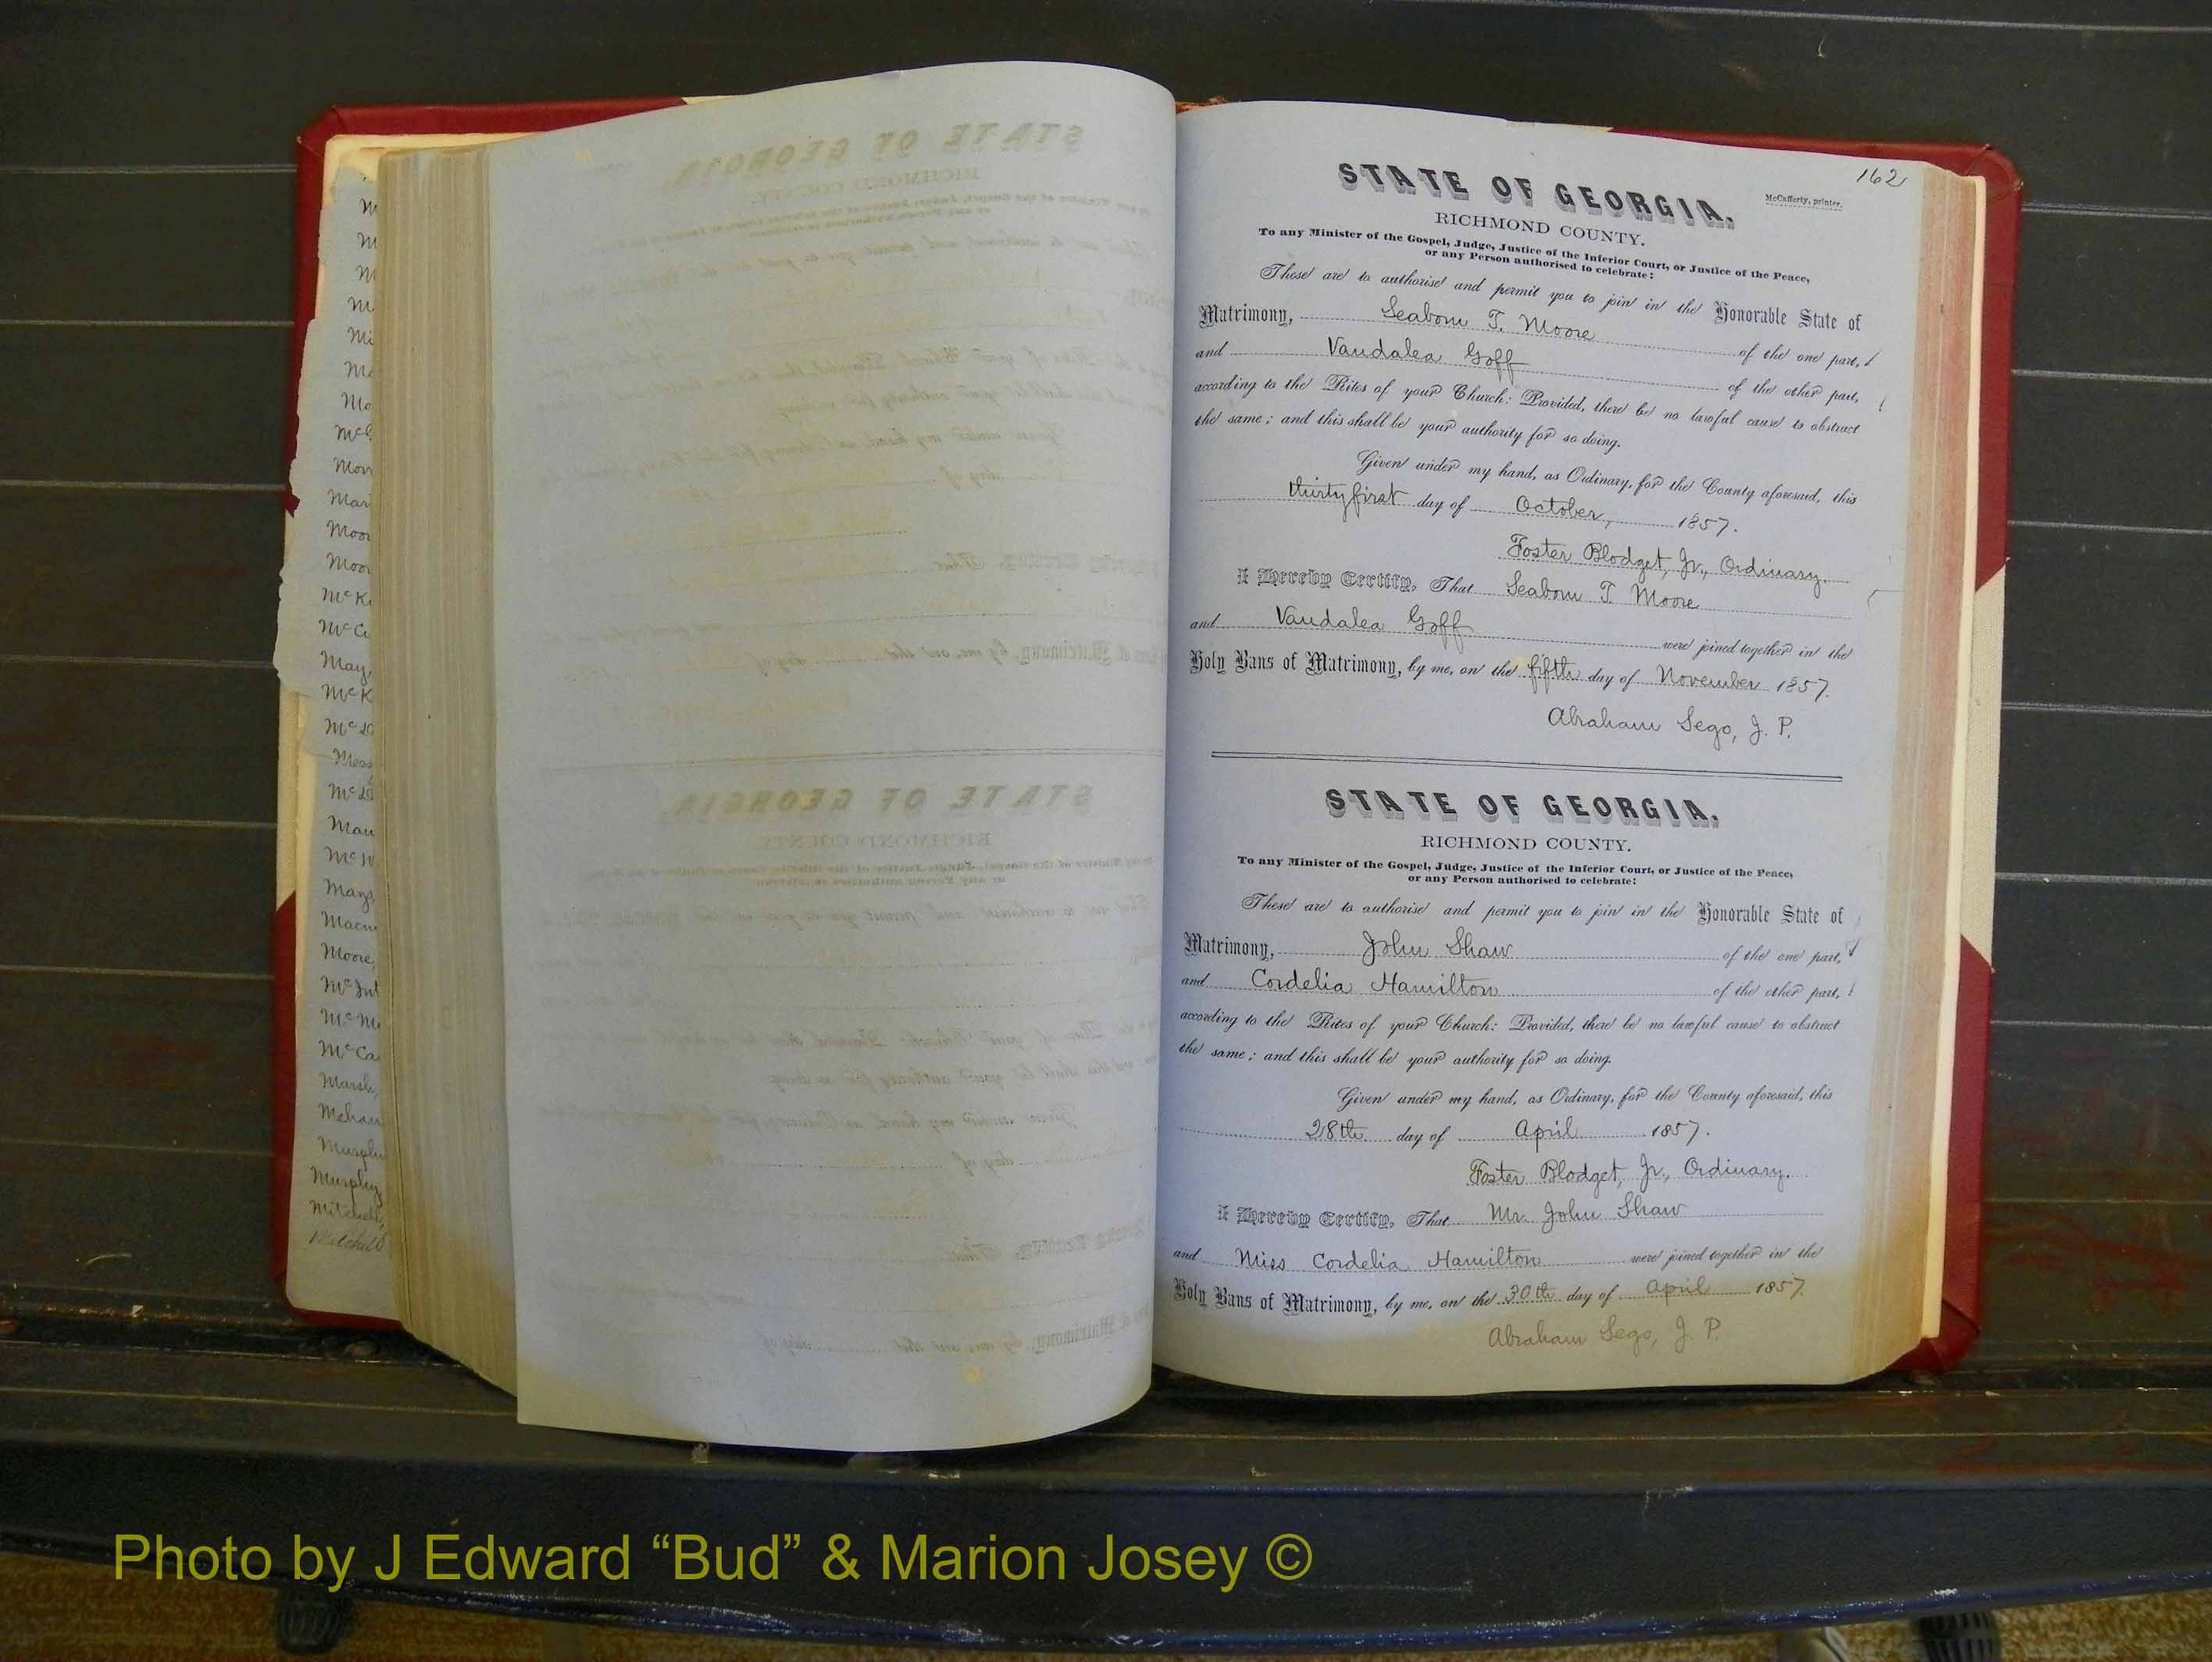 162
STATE OF GEORGIA.
McCafferty, printer.
RICHMOND COUNTY.
To any Minister of the Gospel, Judge, Justice of the Inferior Court, or Justice of the Peace,
or any Person authorised to celebrate:
These are to authorise and permit you to join in the Honorable State of
Matrimony, Seaborn T. Moore of the one part,
and Vandalea Goff of the other part,
according to the Rites of your Church: Provided, there be no lawful cause to obstruct
the same; and this shall be your authority for so doing.
Given under my hand, as Ordinary, for the County aforesaid, this
thirty first day of October, 1857.
Foster Blodget, Jr., Ordinary.
I Hereby Certify, That Seaborn T. Moore
and Vandalea Goff were joined together in the
Holy Bans of Matrimony, by me, on the fifth day of November 1857.
Abraham Sego, J. P.
STATE OF GEORGIA.
RICHMOND COUNTY.
To any Minister of the Gospel, Judge, Justice of the Inferior Court, or Justice of the Peace,
or any Person authorised to celebrate:
These are to authorise and permit you to join in the Honorable State of
Matrimony, John Shaw of the one part,
and Cordelia Hamilton of the other part,
according to the Rites of your Church: Provided, there be no lawful cause to obstruct
the same; and this shall be your authority for so doing.
Given under my hand, as Ordinary, for the County aforesaid, this
28th day of April 1857.
Foster Blodget, Jr., Ordinary.
I Hereby Certify, That Mr. John Shaw
and Miss Cordelia Hamilton were joined together in the
Holy Bans of Matrimony, by me, on the 30th day of April 1857.
Abraham Sego, J. P.
Photo by J Edward “Bud” & Marion Josey ©